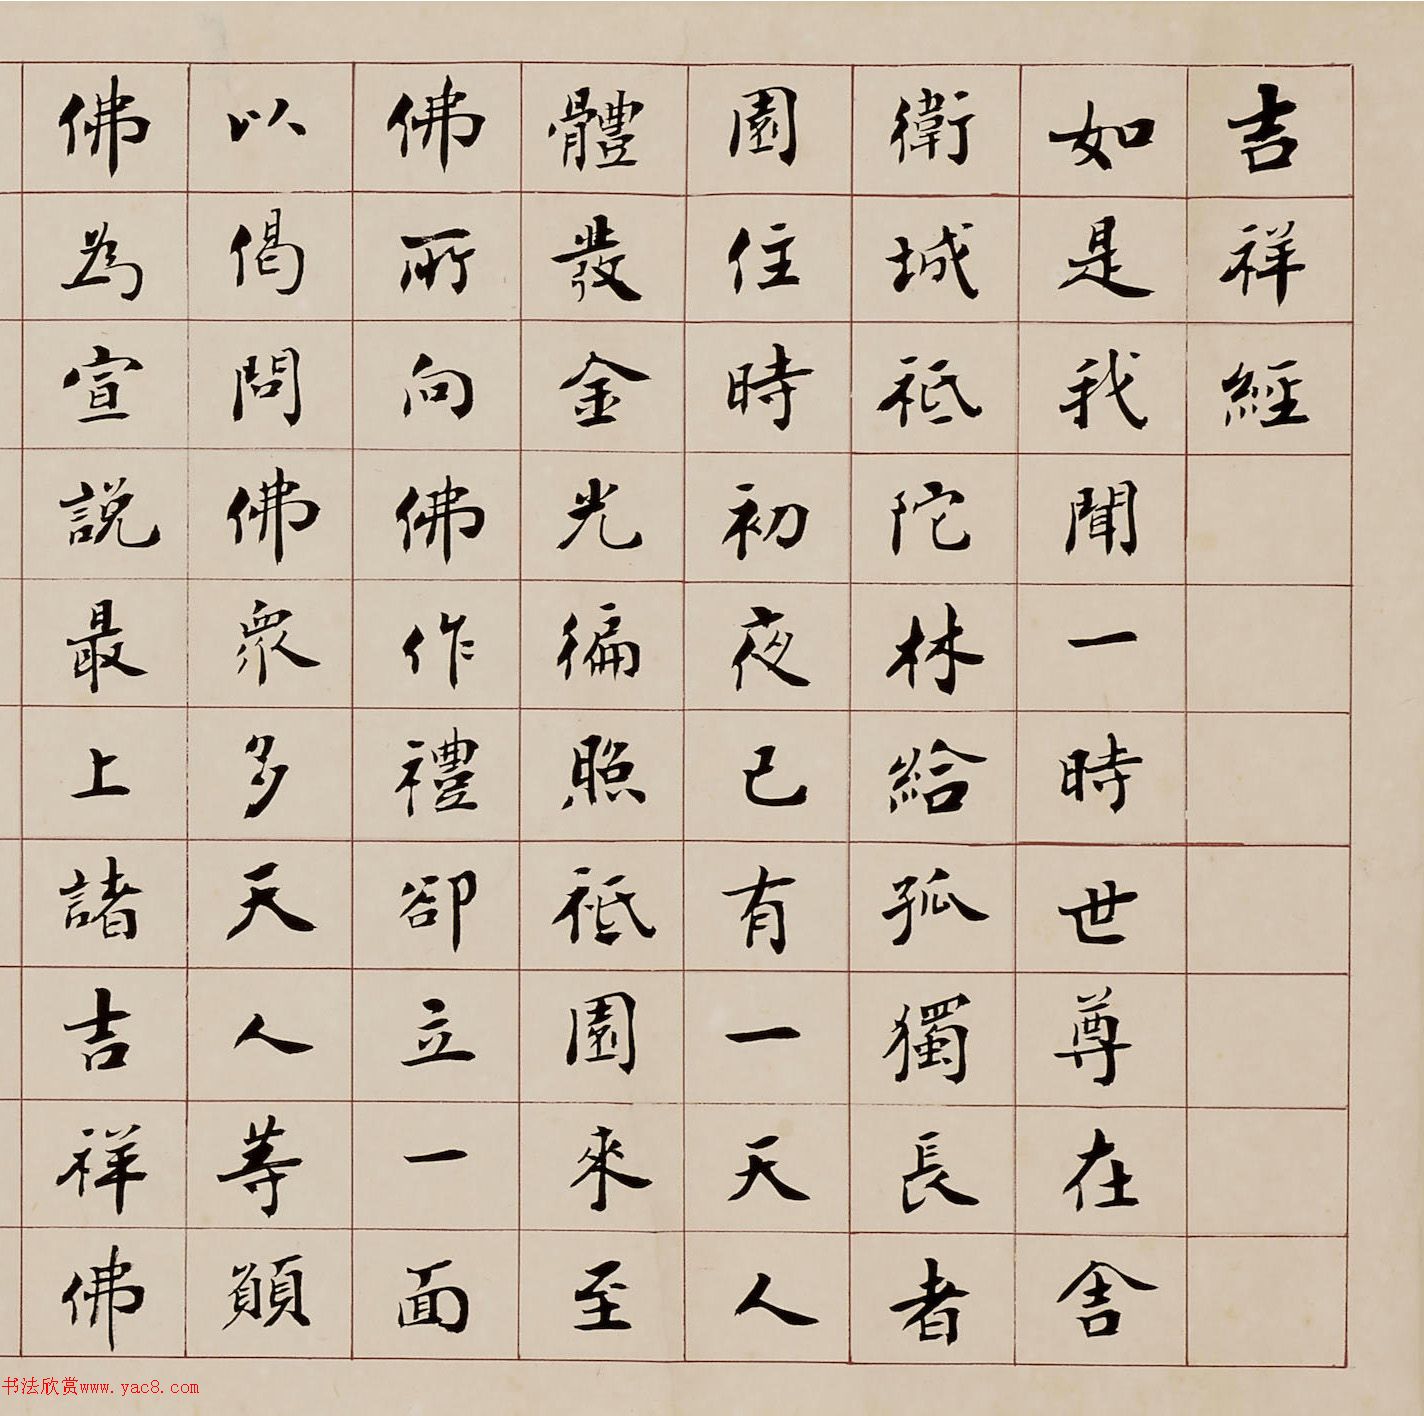 吉祥經
如是我聞一時世尊在舍
衛城祇陀林給孤獨長者
園住時初夜已有一天人
體發金光徧照祇園來至
佛所向佛作禮卻立一面
以偈問佛衆多天人等願
佛為宣説最上諸吉祥佛
书法欣赏www.yac8.com